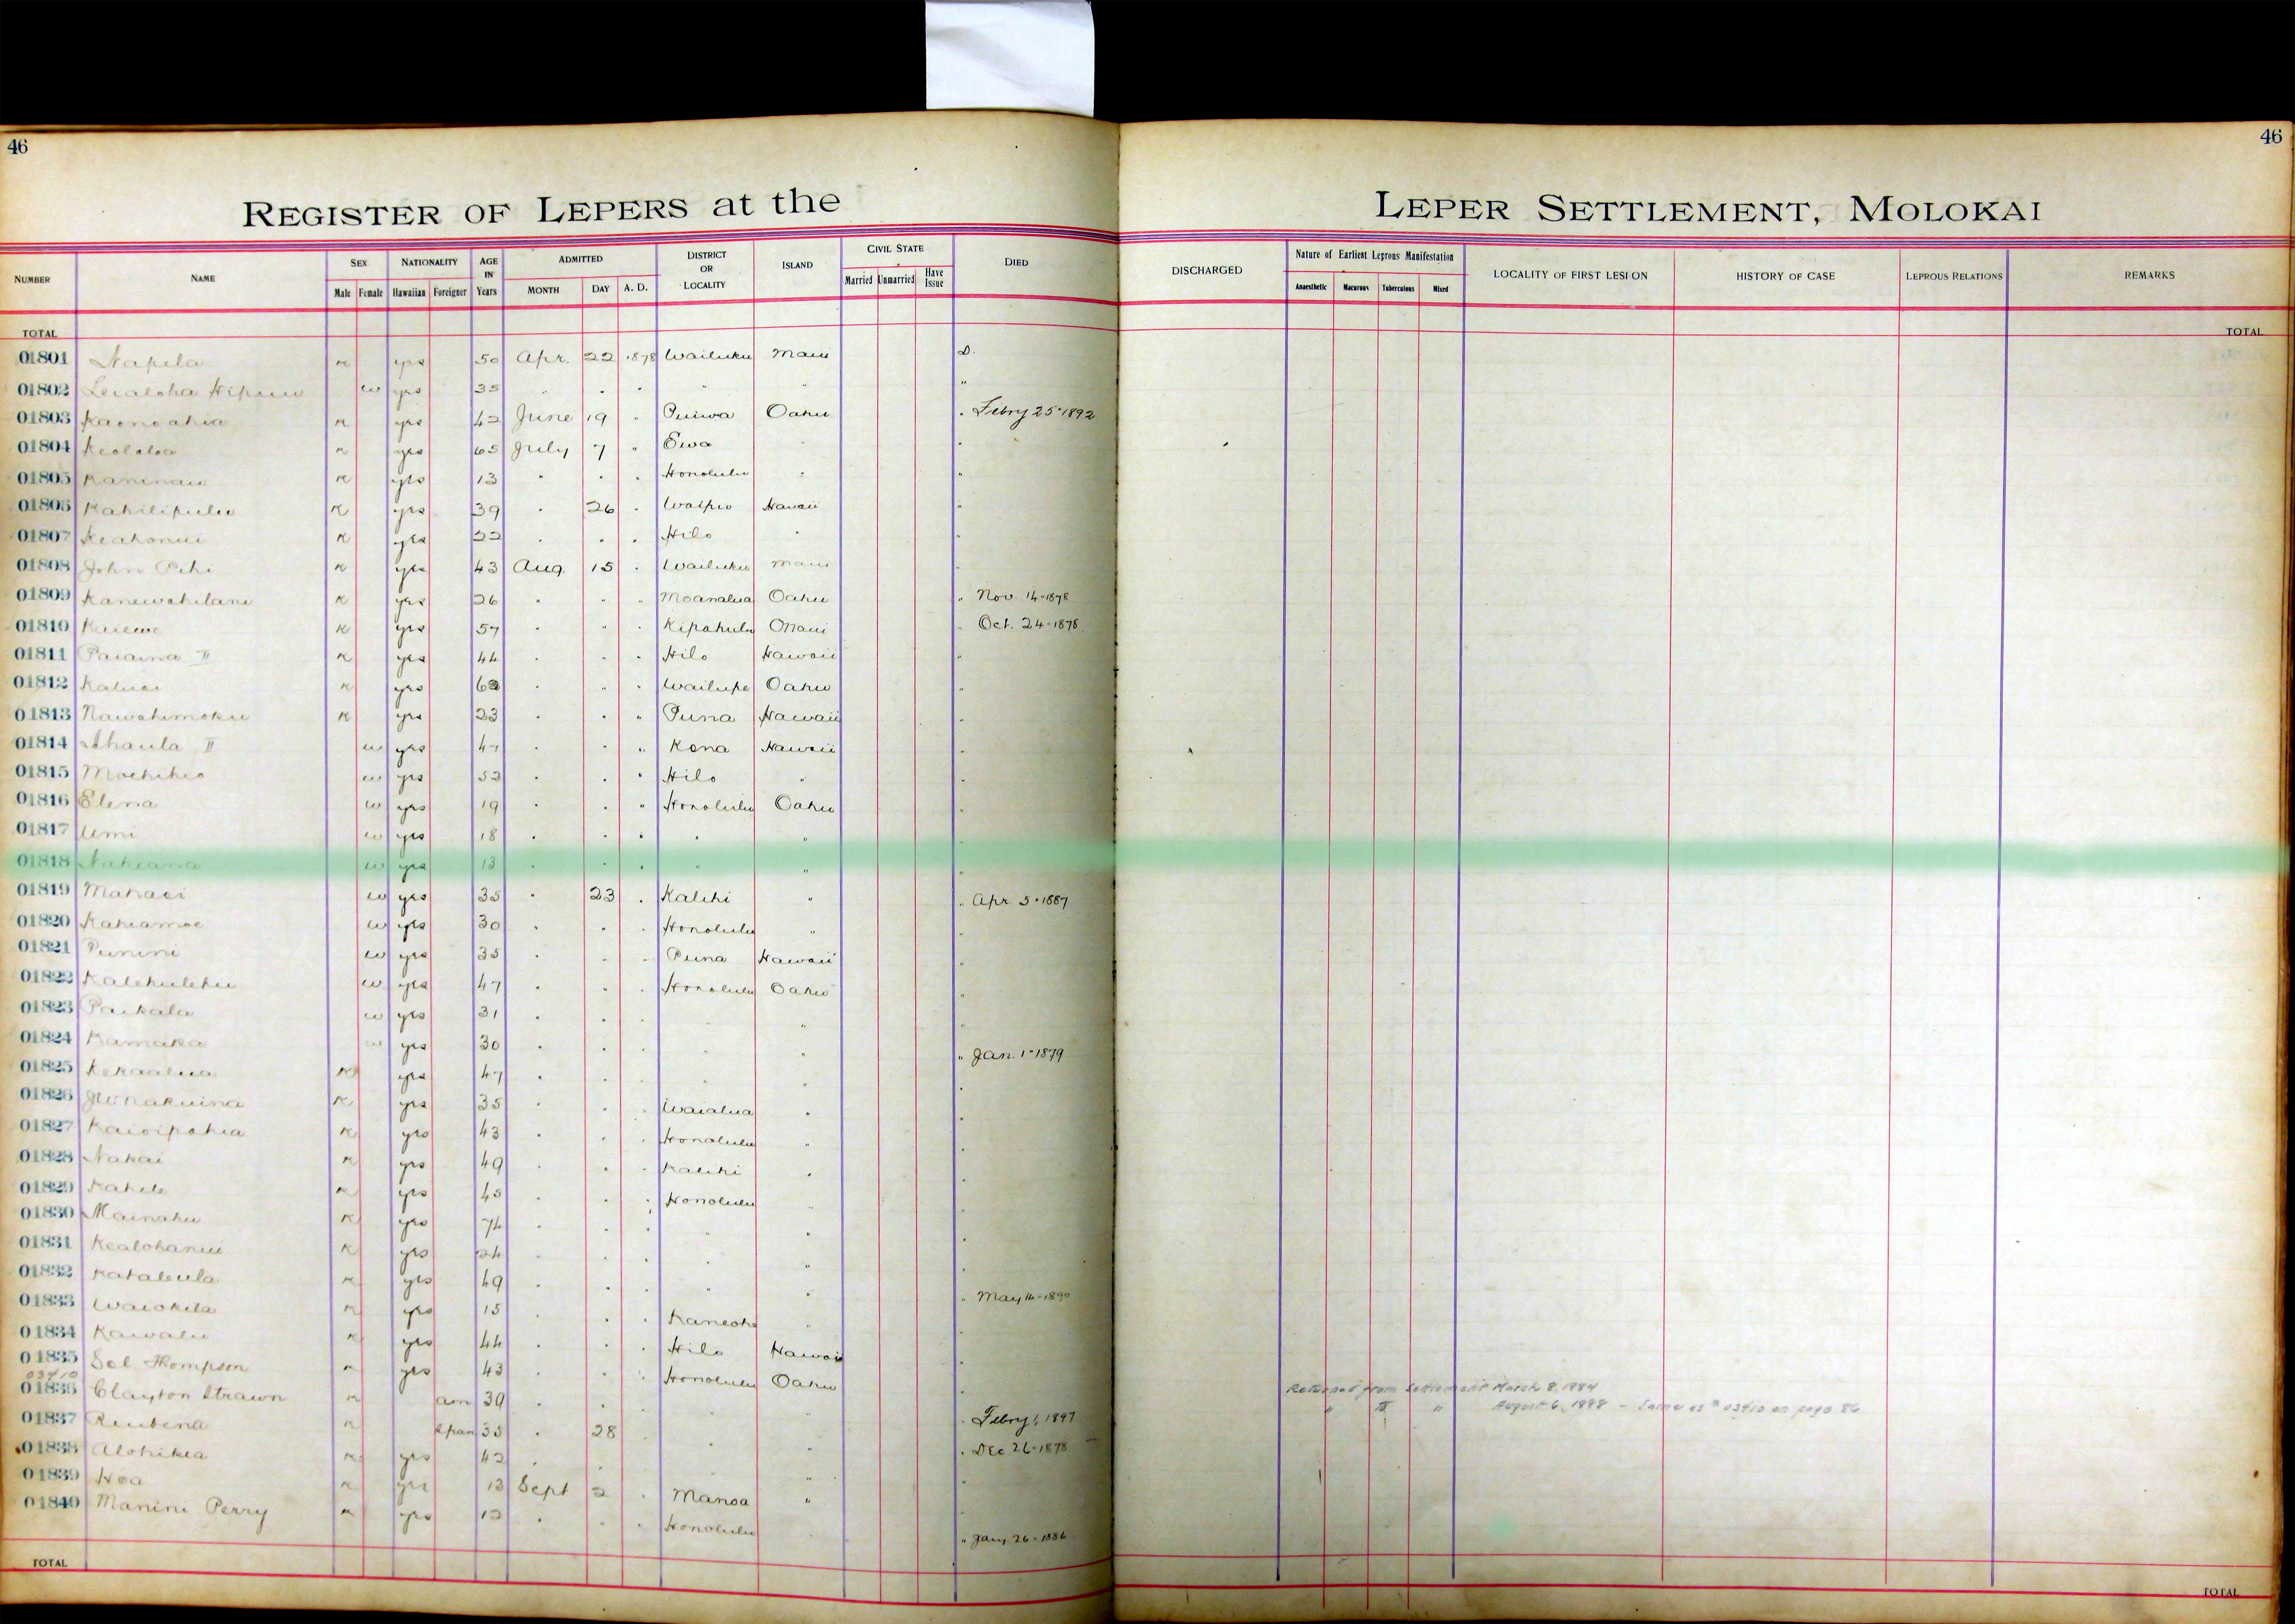 46
46
REGISTER OF LEPERS at the LEPER SETTLEMENT, MOLOKAI
NUMBER NAME SEX Male Female NATIONALITY Hawaiian Foreigner AGE IN Years ADMITTED MONTH DAY A. D. DISTRICT OR LOCALITY ISLAND CIVIL STATE Married Unmarried Have Issue DIED DISCHARGED Nature of Earliest Leprous Manifestation Anaesthetic Macurous Tuberculous Mixed LOCALITY OF FIRST LESION HISTORY OF CASE LEPROUS RELATIONS REMARKS
TOTAL TOTAL
01801 Napela m yes 50 Apr. 22 1878 Wailuku Maui D.
01802 Leialoha w yes 35 " " " " " "
01803 Kaonoahia m yes 42 June 19 " Puiwa Oahu " Febry 25-1892
01804 Keololoa m yes 65 July 7 " Ewa " "
01805 Kaninau m yes 13 " " " Honolulu " "
01806 Kahilipulu m yes 39 " 26 " Waipio Hawaii "
01807 Keahonui m yes 22 " " " Hilo " "
01808 John m yes 43 Aug. 15 " Wailuku Maui "
01809 Kanewahilani m yes 26 " " " Moanalua Oahu " Nov. 14-1878
01810 Kaiewe m yes 57 " " " Kipahulu Maui " Oct. 24-1878
01811 Paiaina II m yes 44 " " " Hilo Hawaii "
01812 Kaluai m yes 62 " " " Wailupe Oahu "
01813 Nawahimoku m yes 23 " " " Puna Hawaii "
01814 Ahaula II w yes 47 " " " Kona Hawaii "
01815 Moehikio w yes 52 " " " Hilo " "
01816 Elena w yes 19 " " " Honolulu Oahu "
01817 Umi w yes 18 " " " " " "
01818 w yes 13 " " " " "
01819 Mahaei w yes 35 " 23 " Kalihi " " Apr. 5-1887
01820 Kahiamoe w yes 30 " " " Honolulu " "
01821 Punini w yes 35 " " " Puna Hawaii "
01822 Kalehulehu w yes 47 " " " Honolulu Oahu "
01823 Paikala w yes 31 " " " " "
01824 Kamaka w yes 30 " " " " " " Jan. 1-1879
01825 Kekaalua m yes 47 " " " " " "
01826 m yes 35 " " " Waialua " "
01827 Kaioipahia m yes 43 " " " Honolulu " "
01828 Nakai m yes 49 " " " Kalihi " "
01829 Kahele m yes 45 " " " Honolulu " "
01830 Mainahu m yes 74 " " " " " "
01831 Kealohanui m yes 24 " " " " " "
01832 Kahaleula m yes 49 " " " " " " May 14-1890
01833 Waiohila m yes 15 " " " Kaneohe " "
01834 Kawalu m yes 44 " " " Hilo Hawaii "
01835 Sol Thompson m yes 43 " " " Honolulu Oahu "
03410
01836 Clayton Strawn m am 39 " " " " " Febry 1, 1897 Returned from Settlement March 8, 1884
" " " August 6, 1888 - Same as # 03410 on page 86
01837 Reubena m Span 35 " 28 " " " Dec 26-1878
01838 Alohikea m yes 42 " " " "
01839 Hoa m yes 13 Sept 2 " Manoa "
01840 Manini Perry m yes 12 " " " Honolulu " Jany 26-1886
TOTAL TOTAL